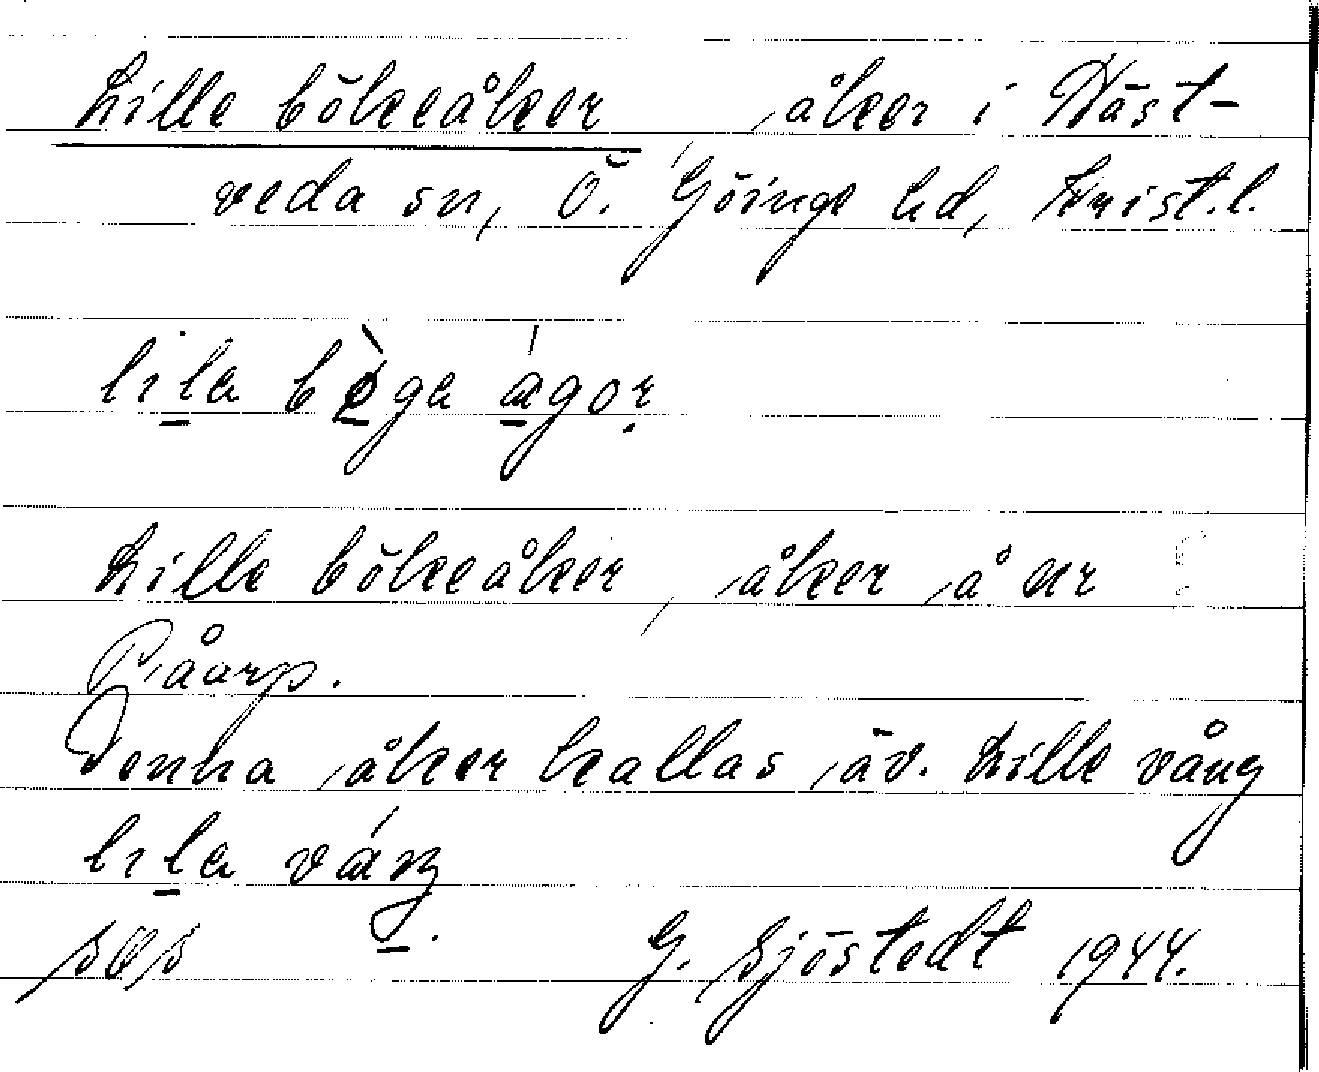 Lille bökeåker, åker i Häst-
veda sn, Ö. Göinge hd, Krist.l.
lila bø̀ga ágor
Lille bökeåker, åker å nr
Råarp.
Denna åker kallas äv. Lille vång
lila váŋ
G. Sjöstedt 1944.